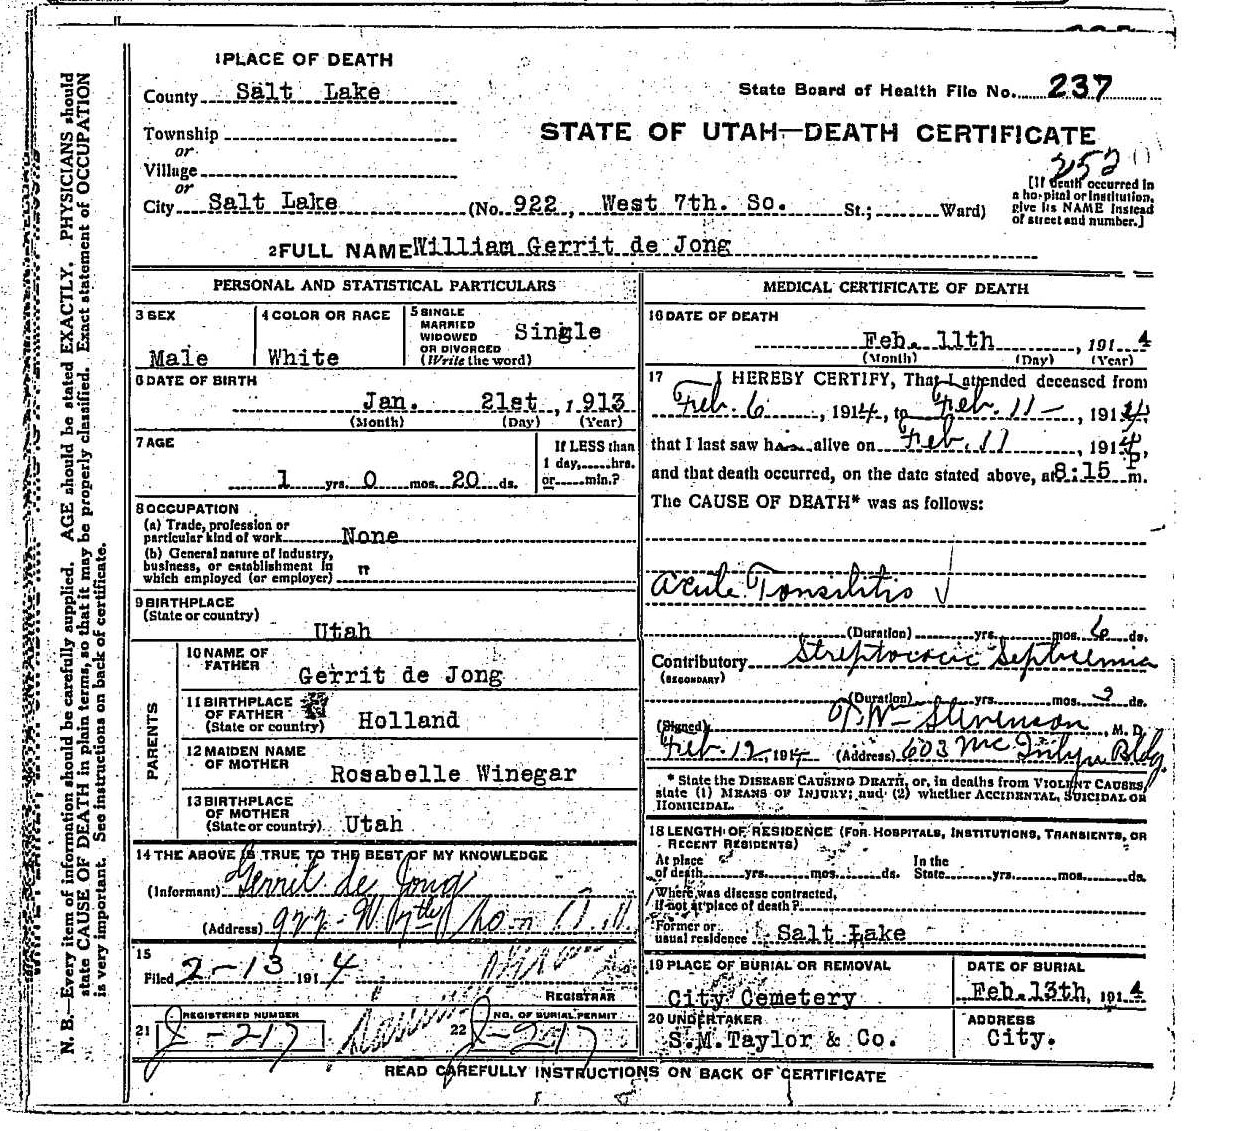 1 PLACE OF DEATH
County Salt Lake
State Board of Health File No. 237
Township
STATE OF UTAH—DEATH CERTIFICATE
or
252
Village
or
City Salt Lake (No. 922, West 7th. So. St.; Ward)
[If death occurred in
a hospital or institution,
give its NAME instead
of street and number.]
2 FULL NAME William Gerrit de Jong
PERSONAL AND STATISTICAL PARTICULARS
3 SEX
Male
4 COLOR OR RACE
White
5 SINGLE
MARRIED
WIDOWED
OR DIVORCED
(Write the word)
Single
6 DATE OF BIRTH
Jan. 21st, 1913
(Month) (Day) (Year)
7 AGE
1 yrs. 0 mos. 20 ds.
If LESS than
1 day, hrs.
or min.?
8 OCCUPATION
(a) Trade, profession or
particular kind of work None
(b) General nature of industry,
business, or establishment in
which employed (or employer) "
9 BIRTHPLACE
(State or country)
Utah
PARENTS
10 NAME OF
FATHER
Gerrit de Jong
11 BIRTHPLACE
OF FATHER
(State or country)
Holland
12 MAIDEN NAME
OF MOTHER
Rosabelle Winegar
13 BIRTHPLACE
OF MOTHER
(State or country) Utah
14 THE ABOVE IS TRUE TO THE BEST OF MY KNOWLEDGE
(Informant) Gerrit de Jong
(Address)
15
Filed 2-13 1914
REGISTRAR
REGISTERED NUMBER
21
NO. OF BURIAL PERMIT
22
MEDICAL CERTIFICATE OF DEATH
16 DATE OF DEATH
Feb. 11th, 1914
(Month) (Day) (Year)
17 I HEREBY CERTIFY, That I attended deceased from
Feb. 6, 1914, to Feb. 11-, 1914,
that I last saw him alive on Feb. 11, 1914,
and that death occurred, on the date stated above, at 8:15 P m.
The CAUSE OF DEATH* was as follows:
Acute Tonsilitis
(Duration) yrs. mos. 6 ds.
Contributory Streptococic Septicemia
(SECONDARY)
(Duration) yrs. mos. 2 ds.
(Signed) Stevenson, M. D.
Feb. 12, 1914 (Address) 603 Bldg.
* State the DISEASE CAUSING DEATH, or, in deaths from VIOLENT CAUSES,
state (1) MEANS OF INJURY; and (2) whether ACCIDENTAL, SUICIDAL OR
HOMICIDAL.
18 LENGTH OF RESIDENCE (FOR HOSPITALS, INSTITUTIONS, TRANSIENTS, OR
RECENT RESIDENTS)
At place
of death yrs. mos. ds.
In the
State yrs. mos. ds.
Where was disease contracted,
if not at place of death?
Former or
usual residence Salt Lake
19 PLACE OF BURIAL OR REMOVAL
City Cemetery
DATE OF BURIAL
Feb. 13th, 1914
20 UNDERTAKER
S.M. Taylor & Co.
ADDRESS
City.
READ CAREFULLY INSTRUCTIONS ON BACK OF CERTIFICATE
N. B.—Every item of information should be carefully supplied. AGE should be stated EXACTLY. PHYSICIANS should
state CAUSE OF DEATH in plain terms, so that it may be properly classified. Exact statement of OCCUPATION
is very important. See instructions on back of certificate.